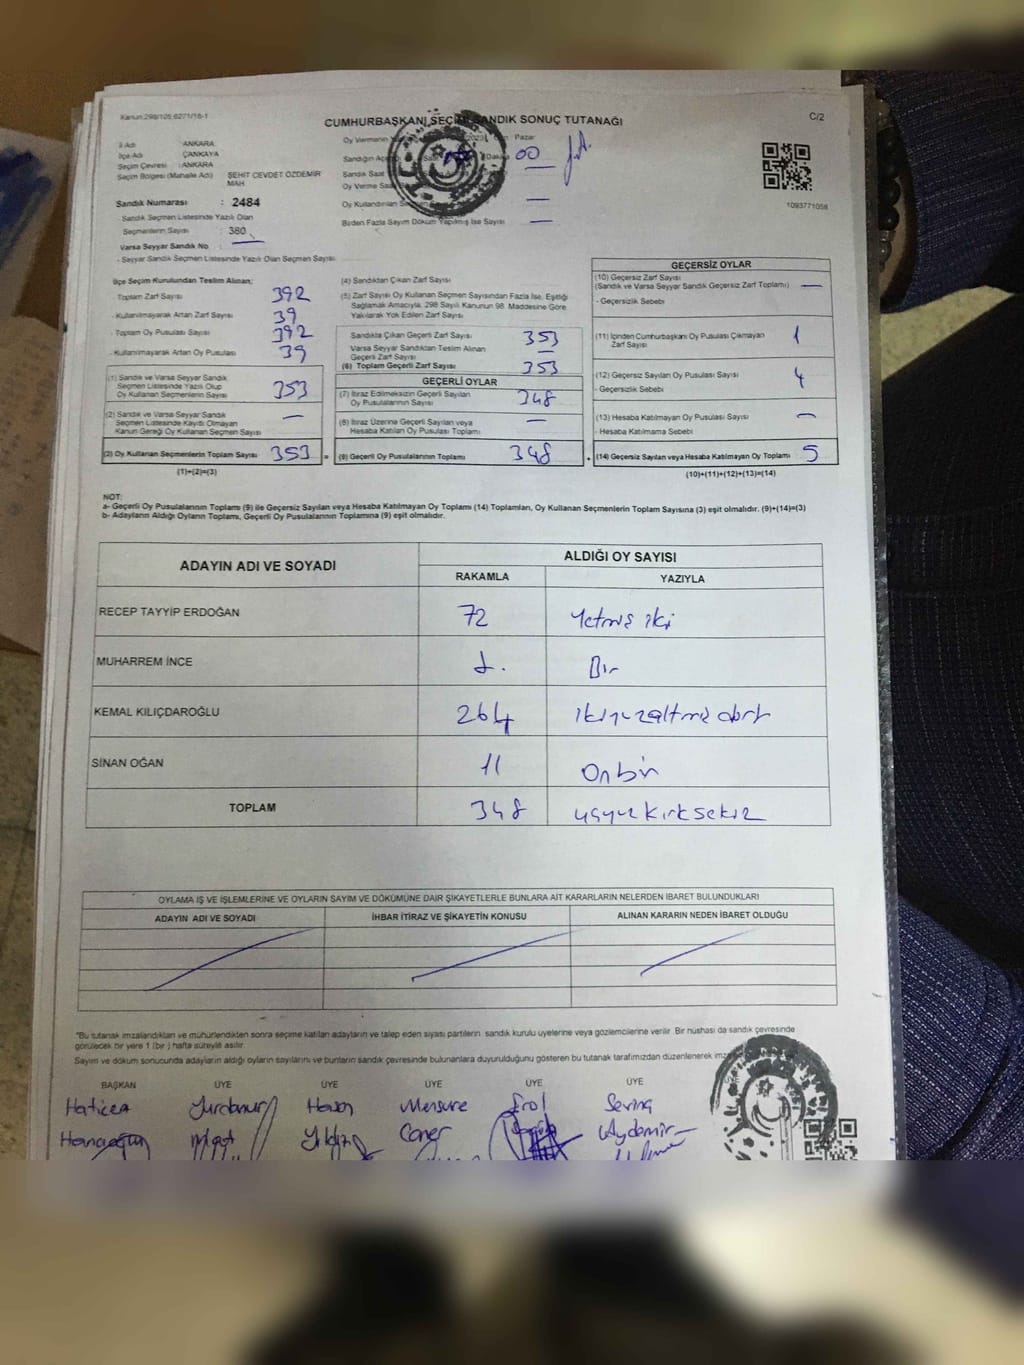 Kanun:298/105,6271/16-1
CUMHURBAŞKANI SEÇİMİ SANDIK SONUÇ TUTANAĞI
C/2
İl Adı : ANKARA
İlçe Adı : ÇANKAYA
Seçim Çevresi : ANKARA
Seçim Bölgesi (Mahalle Adı) : ŞEHİT CEVDET ÖZDEMİR MAH
Sandık Numarası : 2484
Sandık Seçmen Listesinde Yazılı Olan
Seçmenlerin Sayısı : 380
Varsa Seyyar Sandık No :
- Seyyar Sandık Seçmen Listesinde Yazılı Olan Seçmen Sayısı
Oy Vermenin Pazar
Sandığın Saat Dakika 00
Sandık Saat
Oy Verme Saat
Oy Kullandırılan
Birden Fazla Sayım Döküm Yapılmış İse Sayısı —
1093771058
İlçe Seçim Kurulundan Teslim Alınan;
Toplam Zarf Sayısı 392
- Kullanılmayarak Artan Zarf Sayısı 39
- Toplam Oy Pusulası Sayısı 392
Kullanılmayarak Artan Oy Pusulası 39
(1) Sandık ve Varsa Seyyar Sandık
Seçmen Listesinde Yazılı Olup
Oy Kullanan Seçmenlerin Sayısı 353
(2) Sandık ve Varsa Seyyar Sandık
Seçmen Listesinde Kaydı Olmayan
Kanun Gereği Oy Kullanan Seçmen Sayısı —
(3) Oy Kullanan Seçmenlerin Toplam Sayısı 353 =
(1)+(2)=(3)
(4) Sandıktan Çıkan Zarf Sayısı
(5) Zarf Sayısı Oy Kullanan Seçmen Sayısından Fazla İse, Eşitliği
Sağlamak Amacıyla, 298 Sayılı Kanunun 98. Maddesine Göre
Yakılarak Yok Edilen Zarf Sayısı
Sandıkta Çıkan Geçerli Zarf Sayısı 353
Varsa Seyyar Sandıktan Teslim Alınan
Geçerli Zarf Sayısı —
(6) Toplam Geçerli Zarf Sayısı 353
GEÇERLİ OYLAR
(7) İtiraz Edilmeksizin Geçerli Sayılan
Oy Pusulalarının Sayısı 348
(8) İtiraz Üzerine Geçerli Sayılan veya
Hesaba Katılan Oy Pusulası Toplamı —
(9) Geçerli Oy Pusulalarının Toplamı 348 +
GEÇERSİZ OYLAR
(10) Geçersiz Zarf Sayısı
(Sandık ve Varsa Seyyar Sandık Geçersiz Zarf Toplamı) —
- Geçersizlik Sebebi
(11) İçinden Cumhurbaşkanı Oy Pusulası Çıkmayan
Zarf Sayısı 1
(12) Geçersiz Sayılan Oy Pusulası Sayısı 4
- Geçersizlik Sebebi
(13) Hesaba Katılmayan Oy Pusulası Sayısı —
- Hesaba Katılmama Sebebi
(14) Geçersiz Sayılan veya Hesaba Katılmayan Oy Toplamı 5
(10)+(11)+(12)+(13)=(14)
NOT:
a- Geçerli Oy Pusulalarının Toplamı (9) ile Geçersiz Sayılan veya Hesaba Katılmayan Oy Toplamı (14) Toplamları, Oy Kullanan Seçmenlerin Toplam Sayısına (3) eşit olmalıdır. (9)+(14)=(3)
b- Adayların Aldığı Oyların Toplamı, Geçerli Oy Pusulalarının Toplamına (9) eşit olmalıdır.
ADAYIN ADI VE SOYADI
ALDIĞI OY SAYISI
RAKAMLA YAZIYLA
RECEP TAYYİP ERDOĞAN 72 Yetmiş iki
MUHARREM İNCE 1. Bir
KEMAL KILIÇDAROĞLU 264 ikiyüzaltmış dört
SİNAN OĞAN 11 Onbir
TOPLAM 348 üçyüz kırk sekiz
OYLAMA İŞ VE İŞLEMLERİNE VE OYLARIN SAYIM VE DÖKÜMÜNE DAİR ŞİKAYETLERLE BUNLARA AİT KARARLARIN NELERDEN İBARET BULUNDUKLARI
ADAYIN ADI VE SOYADI İHBAR İTİRAZ VE ŞİKAYETİN KONUSU ALINAN KARARIN NEDEN İBARET OLDUĞU
*Bu tutanak imzalandıktan ve mühürlendikten sonra seçime katılan adayların ve talep eden siyasi partilerin sandık kurulu üyelerine veya gözlemcilerine verilir. Bir nüshası da sandık çevresinde
görülecek bir yere 1 (bir ) hafta süreyle asılır.
Sayım ve döküm sonucunda adayların aldığı oyların sayılarını ve bunların sandık çevresinde bulunanlara duyurulduğunu gösteren bu tutanak tarafımızdan düzenlenerek
BAŞKAN ÜYE ÜYE ÜYE ÜYE ÜYE
Hatice Yurdanur Hasan Mensure Erol Sevinç
Yıldız Caner Aydemir